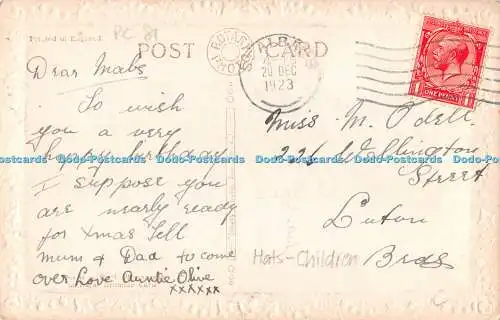 PC 81
Printed in England
POST CARD
ROTARY PHOTO
ST ALBANS
20 DEC
1923
ONE PENNY
Dear Mabs
To wish
you a very
happy birthday
I suppose you
are nearly ready
for Xmas Tell
Mum & Dad to come
over Love Auntie Olive
xxxxxx
Miss M. Odell
226 Wellington
Street
Luton
Beds
Hats-Children
Dodo-Postcards Dodo-Postcards Dodo-Postcards Dodo-Postcards Dodo-Postcards